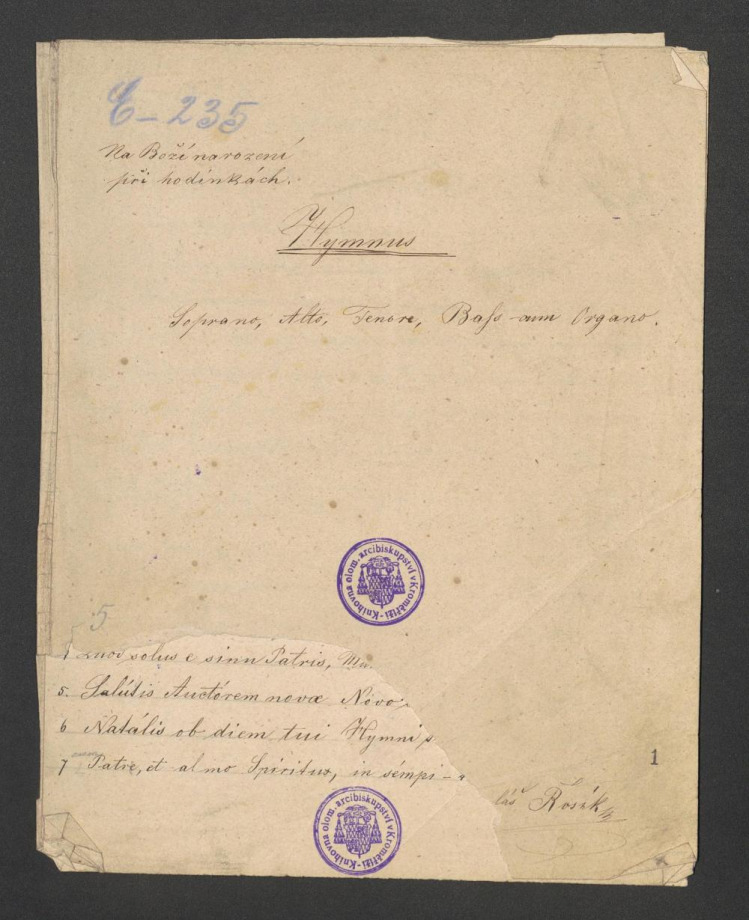 E-235
Na Boží narození
při hodinkách.
Hymnus
Soprano, Alto, Tenore, Bass cum Organo.
Knihovna olom. arcibiskupství v Kroměříži
5
solus e sinu Patris,
5. Salútis Auctórem novæ Novo
6 Natális ob diem tui Hymni
7 Patre, et almo Spiritux, in sempi-
1
láš Rosík
Knihovna olom. arcibiskupství v Kroměříži